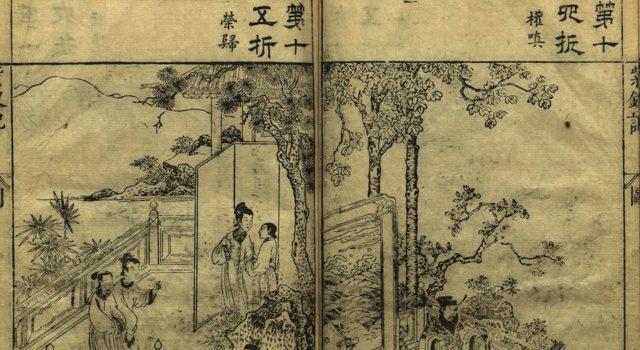 第十
四折
權嗔
第十
五折
榮歸